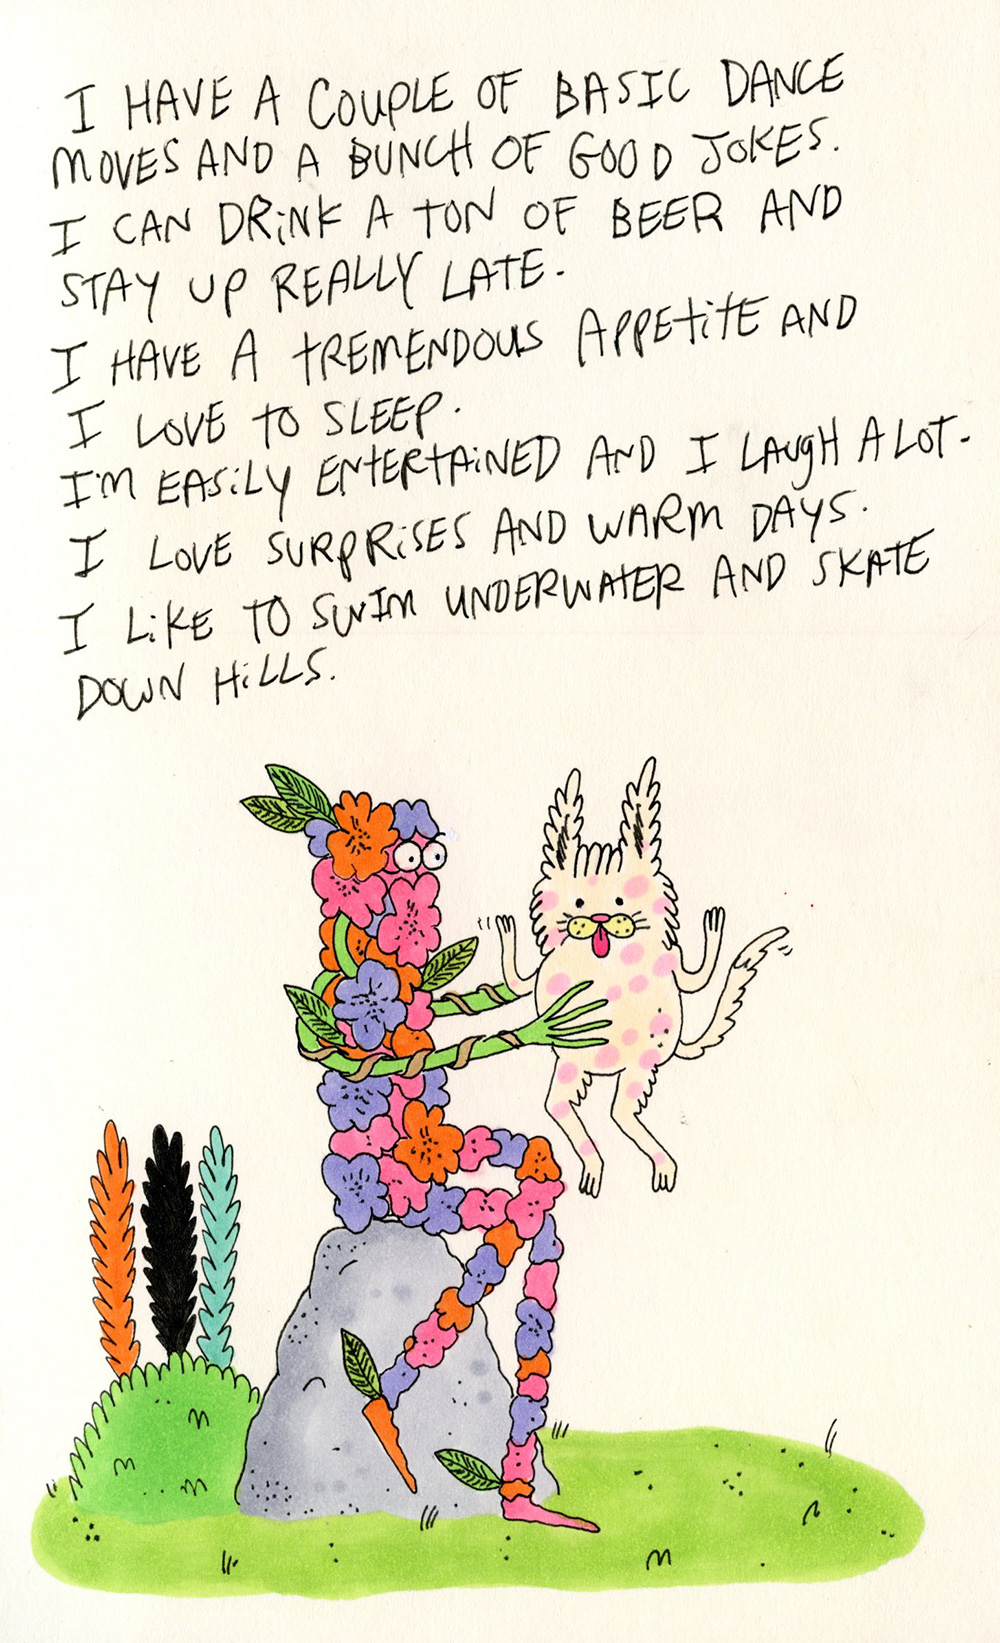 I HAVE A COUPLE OF BASIC DANCE
MOVES AND A BUNCH OF GOOD JOKES.
I CAN DRiNK A TON OF BEER AND
STAY UP REALLY LATE.
I HAVE A tREMENDOUS APPEtitE AND
I LOVE TO SLEEP.
I'M EASiLY ENtERTAiNED AND I LAUgH A LOT.
I LOVE SURPRiSES AND WARM DAYS.
I LiKE TO SWIM UNDERWAtER AND SKATE
DOWN HiLLS.